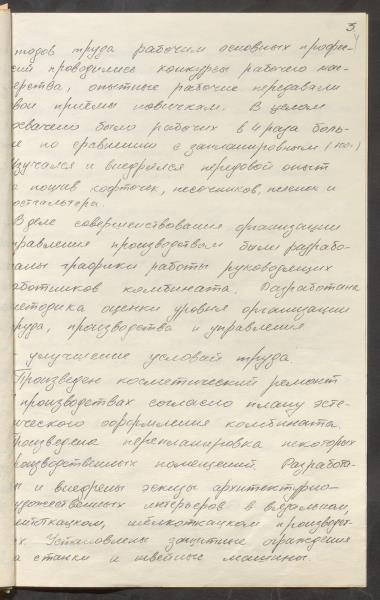 3
тодов труда рабочим основных профес-
сий проводились конкурсы рабочего мас-
ерства, опытные рабочие передавали
вои приёмы новичкам. В целом
охвачено было рабочих в 4 раза боль-
е по сравнению с запланированным
зучался и внедрялся передовой опыт
а пошив кофточек, песочников, пелёнок и
юстгальтера.
В деле совершенствования организации
правления производством были разрабо-
аны графики работы руководящих
аботников комбината. Разработана
етодика оценки уровня организации
руда, производства и управления
улучшение условий труда
Произведен косметический ремонт
производствах согласно плану эсте-
ического оформления комбината.
роизведена перепланировка некоторых
роизводственных помещений. Разработа-
ы и внедрены эскизы архитектурно-
удожественных интерьеров в вязальном,
шёлкоткацком производст-
х. Установлены защитные ограждения
а станки и швейные машины.